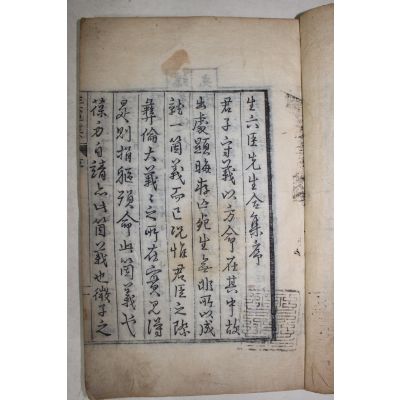 生六臣先生合集序
君子守義以方命在其中故
出處顯晦存亡死生無非所以成
就一箇義而已況惟君臣之際
彝倫大義之所在實見得
是則捐軀殞命此箇義也
葆方自靖亦此箇義也微子之